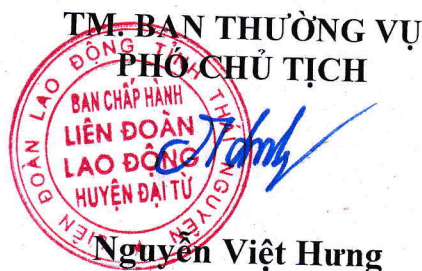 TM. BAN THƯỜNG VỤ
PHÓ CHỦ TỊCH
LIÊN ĐOÀN LAO ĐỘNG TỈNH THÁI NGUYÊN
BAN CHẤP HÀNH
LIÊN ĐOÀN
LAO ĐỘNG
HUYỆN ĐẠI TỪ
Nguyễn Việt Hưng